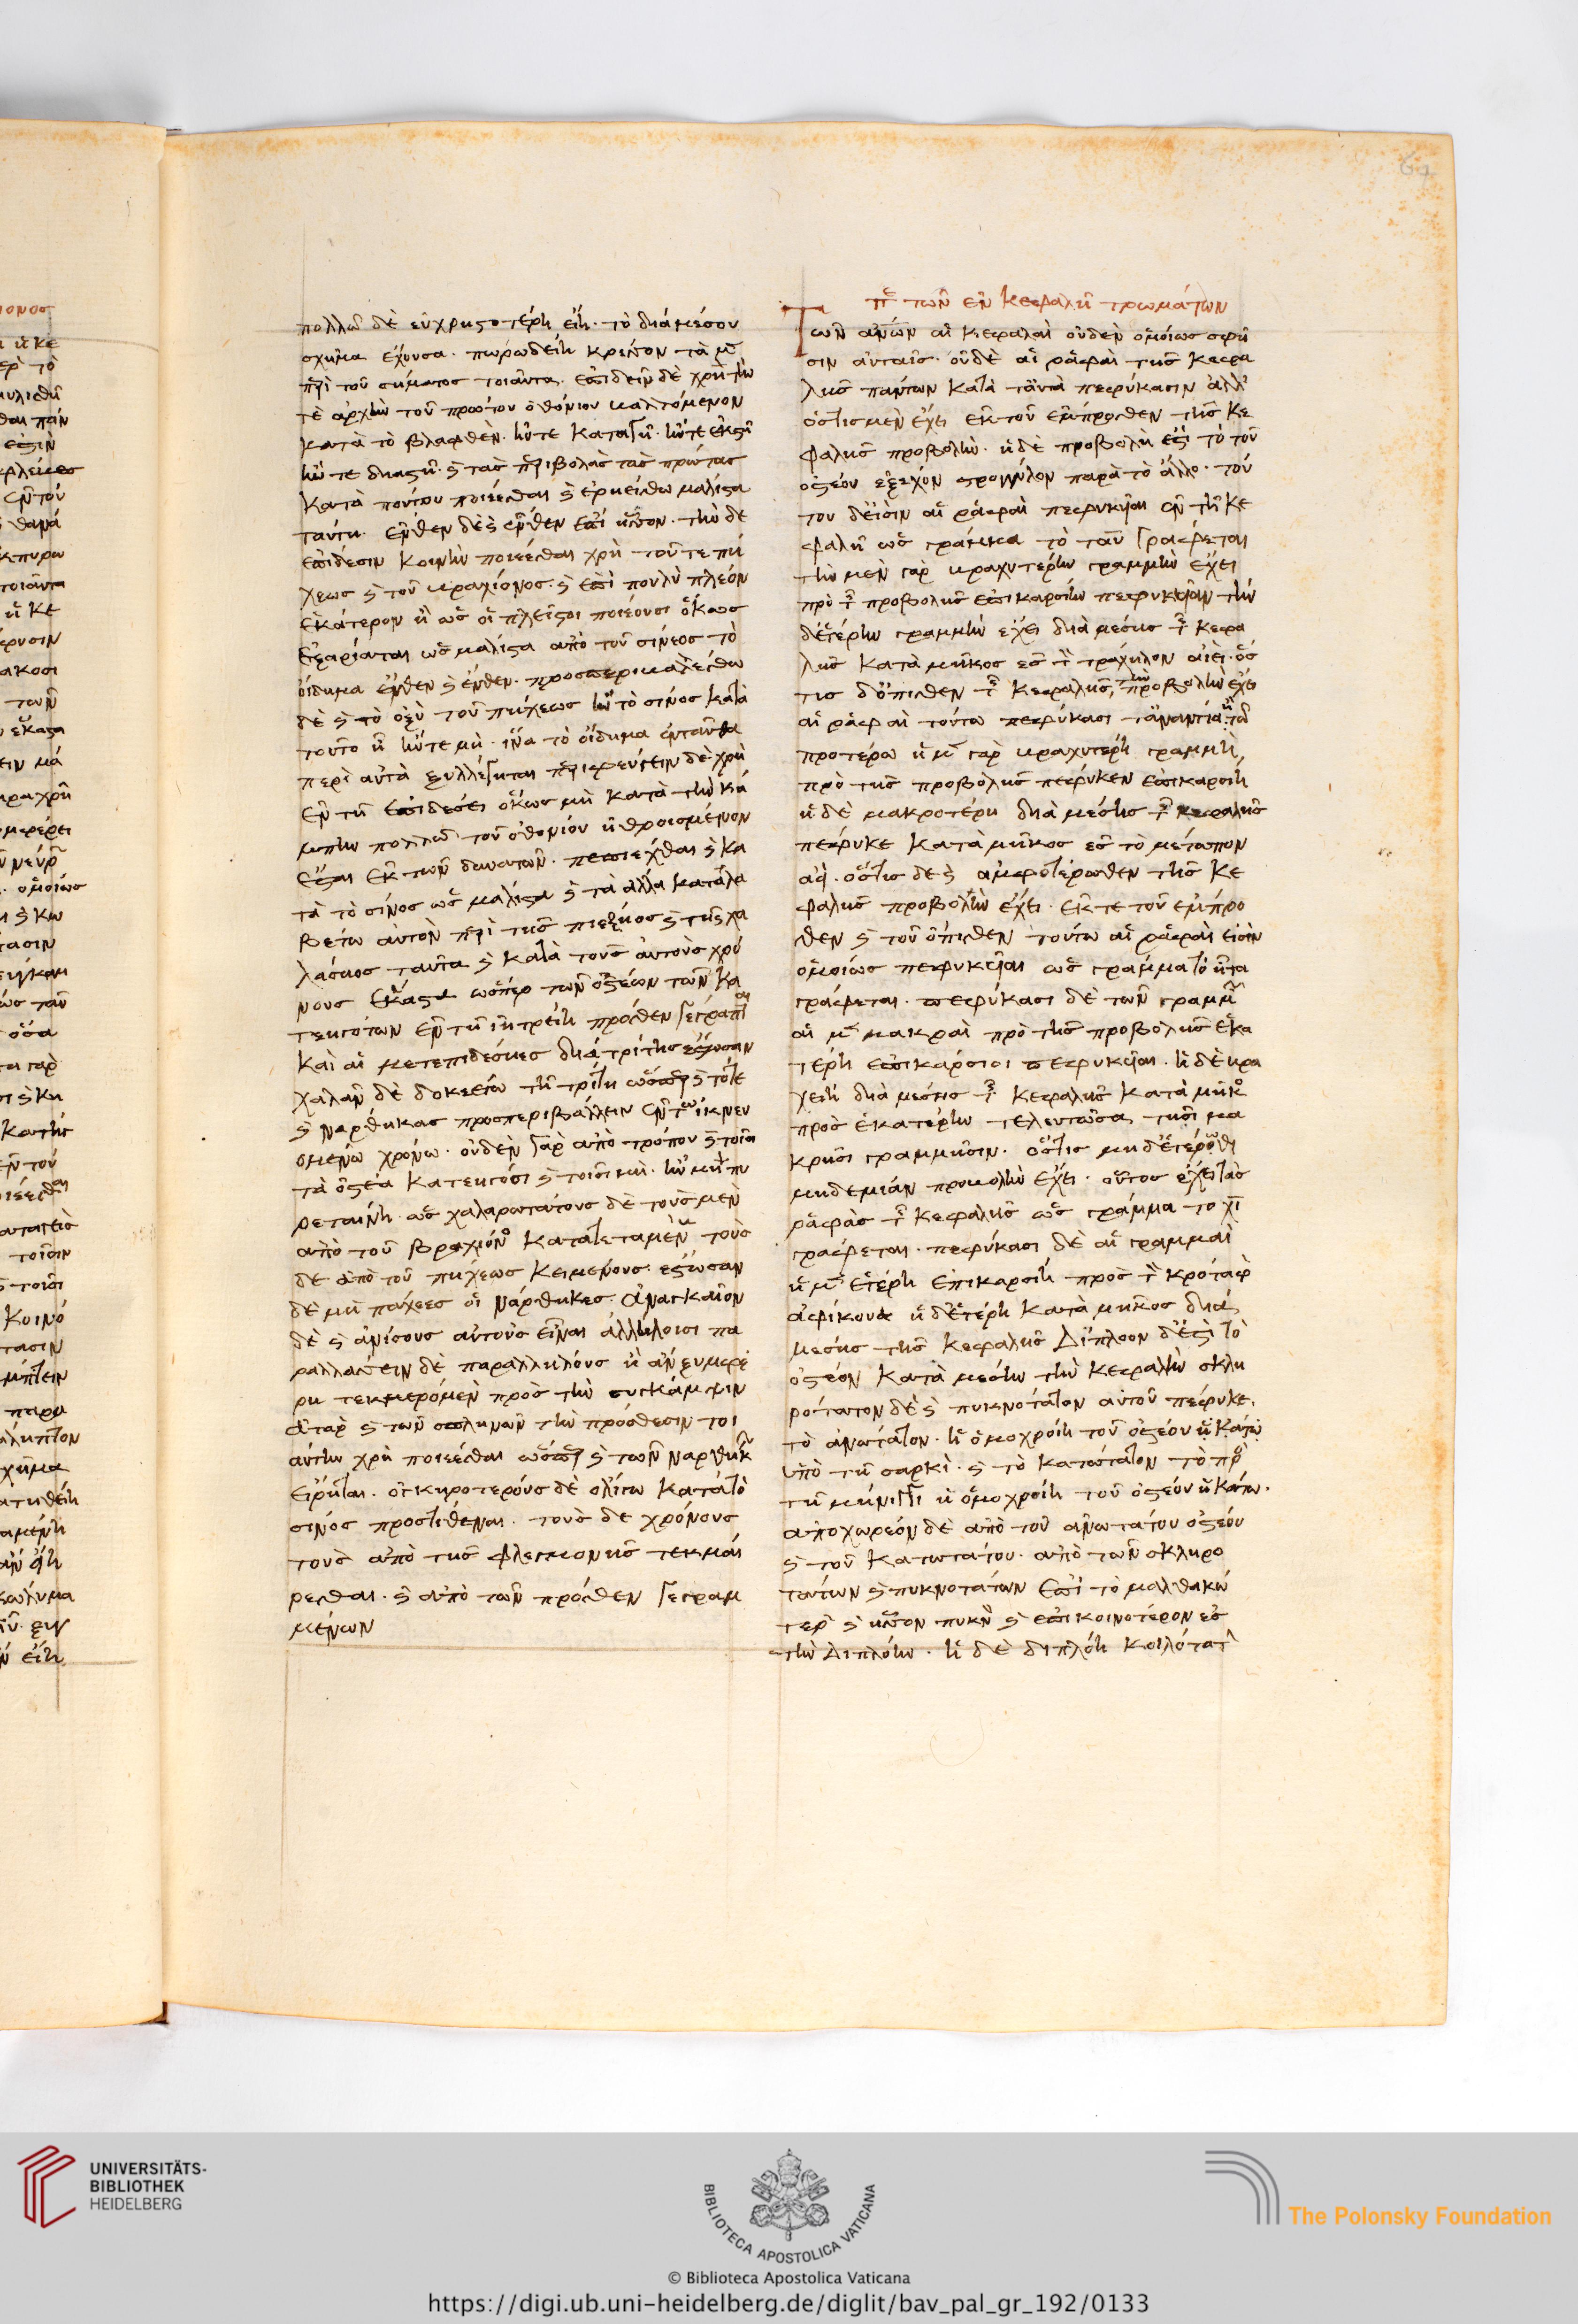 πολλῶ δὲ εὐχρηστοτέρη εἴη. τὸ διὰ μέσου
σχῆμα ἔχουσα. πωρωθείη κρεῖσσον τὰ μ̅
περὶ τοῦ σχήματος τοιαῦτα. ἐπιδεῖν δὲ χρὴ τὴν
τὲ ἀρχὴν τοῦ πρώτου ὀθόνιου βαλλόμενον
κατὰ τὸ βλαφθὲν. ἤν τε καταγῆ. ἤν τε ἐκστῆ
ἤν τε διαστῆ. καὶ τὰς περιβολὰς τὰς πρώτας
κατὰ τοῦτου ποιέεσθαι καὶ ἐρηρείσθω μάλιστα
ταύτη. ἔνθεν δὲ καὶ ἔνθεν ἐπὶ ἧσσον. τὴν δὲ
ἐπίδεσιν κοινὴν ποιέεσθαι χρὴ τοῦ τε πή
χεως καὶ τοῦ βραχίονος. καὶ ἐπὶ πουλὺ πλεόν
ἑκάτερον ἢ ὡς οἱ πλεῖστοι ποιέουσι ὅκως
ἐξαρίαται ὡς μάλιστα ἀπὸ τοῦ σίνεος τὸ
οἴδημα ἔνθεν καὶ ἔνθεν. προσπεριβαλλέσθω
δὲ καὶ τὸ ὀξὺ τοῦ πήχεως ἢν τὸ σίνος κατὰ
τοῦτο ἢ ἤν τε μὴ. ἵνα τὸ οἴδημα ἐνταῦθα
περὶ αὐτὰ ξυλλέγηται περιφεύγειν δὲ χρὴ
ἐν τῆ ἐπιδέσει ὅκως μὴ κατὰ τὴν κά
μπτην πολλῶ τοῦ ὀθονίου ἠθροισμένον
ἔσται ἐκ τῶν δυνατῶν. πεπιέχθαι καὶ κα
τὰ τὸ σίνος ὡς μάλιστα καὶ τὰ ἄλλα καταλα
βέτω αὐτὸν περὶ τῆς πιέξηος καὶ τῆς χα
λάσηος ταῦτα καὶ κατὰ τοὺς αὐτοὺς χρό
νους ἕκαστα ὥσπερ τῶν ὀστέων τῶν κα
τεηγότων ἐν τῆ ἰητρείη πρόσθεν γέγραπται
καὶ αἱ μετεπιδέσηες διὰ τρίτης ἔστωσαν
χαλᾶν δὲ δοκεέτω τῆ τρίτη ὥσπερ καὶ τότε
καὶ νάρθηκας προσπεριβάλλειν ἐν τῶ ἱκνευ
ομένω χρόνω. οὐδὲν γὰρ ἀπὸ τρόπου καὶ τοῖσι
τὰ ὀστέα κατεηγόσι καὶ τοῖσι μὴ. ἢν μὴ πυ
ρεταίνη ὡς χαλαρωτάτους δὲ τοὺς μὲν
ἀπὸ τοῦ βραχίονος κατατεταμένους τοὺς
δὲ ἀπὸ τοῦ πήχεως κειμένους. ἔστωσαν
δὲ μὴ πάχεες οἱ νάρθηκες. ἀναγκαῖον
δὲ καὶ ἀνίσους αὐτοὺς εἶναι ἀλλήλοισι πα
ραλλάσσειν δὲ παραλλήλους ἢ ἂν ξυμφέ
ρη τεκμερόμεν πρὸς τὴν συγκάμψιν
ἀτὰρ καὶ τῶν σπληνῶν τὴν πρόσθεσιν τοι
αύτην χρὴ ποιέεσθαι ὥσπερ καὶ τῶν ναρθήκ
εἴρηται. ὀγκηροτέρους δὲ ὀλίγω κατὰ τὸ
σίνος προστιθέναι. τοὺς δὲ χρόνους
τοὺς ἀπὸ τῆς φλεγμονῆς τεκμαί
ρεσθαι. καὶ ἀπὸ τῶν πρόσθεν γεγραμ
μένων
πε τῶν ἐν κεφαλῆ τρωμάτων
Των ανων αἱ κεφαλαὶ οὐδὲν ὁμοίως σφῆ
σιν αὐταῖς. οὐδὲ αἱ ῥαφαὶ τῆς κεφα
λῆς πάντων κατὰ ταὐτὰ πεφύκασιν ἀλλ'
ὅστις μὲν ἔχει ἐκ τοῦ ἔμπροσθεν τῆς κε
φαλῆς προβολὴν. ἡ δὲ προβολή ἐστι τὸ τοῦ
ὀστέου ἐξέχον στρογγύλον παρὰ τὸ ἄλλο. τού
του δέ εἰσὶν αἱ ῥαφαὶ πεφυκῦαι ἐν τῆ κε
φαλῆ ὡς γράμμα τὸ ταῦ γράφεται
τὴν μὲν γὰρ βραχυτέρην γραμμὴν ἔχει
πρὸ τῆς προβολῆς ἐπικαρσίην πεφυκυῖαν τὴν
δ' ἑτέρην γραμμὴν ἔχει διὰ μέσης τῆς κεφα
λῆς κατὰ μῆκος ἐς τὸν τράχηλον αἰεὶ. ὅσ
τις δ' ὄπισθεν τῆς κεφαλῆς, τὴν προβολὴν ἔχει
αἱ ῥαφαὶ τούτω πεφύκασι τἀναντία ἢ τῶ
προτέρω ἡ μ̅ γὰρ βραχυτέρη γραμμὴ,
πρὸ τῆς προβολῆς πέφυκεν ἐπικαρσίη
ἡ δὲ μακροτέρη διὰ μέσης τῆς κεφαλῆς
πέφυκε κατὰ μῆκος ἐς τὸ μέτωπον
αἰεί. ὅστις δὲ καὶ ἀμφοτέρωθεν τῆς κε
φαλῆς προβολὴν ἔχει. ἔκ τε τοῦ ἔμπρο
σθεν καὶ τοῦ ὄπισθεν τούτω αἱ ῥαφαὶ εἰσὶν
ὁμοίως πεφυκυῖαι ὡς γράμμα τὸ ἦτα
γράφεται. πεφύκασι δὲ τῶν γραμμ
αἱ μ̅ μακραὶ πρὸ τῆς προβολῆς ἑκα
τέρη ἐπικάρσιοι πεφυκυῖαι. ἡ δὲ βρα
χείη διὰ μέσης τῆς κεφαλῆς κατὰ μῆκος
πρὸς ἑκατέρην τελευτῶσα τῆσι μα
κρῆσι γραμμῆσιν. ὅστις μηδ' ἑτέρωθι
μηδεμίαν προβολὴν ἔχει. οὗτος ἔχει τὰς
ῥαφὰς τῆς κεφαλῆς ὡς γράμμα το χῖ
γράφεται. πεφύκασι δὲ αἱ γραμμαὶ
ἡ μ̅ ἑτέρη ἐπικαρσίη πρὸς τὸν κρόταφ
ἀφίκουσα ἡ δ' ἑτέρη κατὰ μῆκος διὰ
μέσης τῆς κεφαλῆς Δίπλοον δ' ἐστὶ τὸ
ὀστέον κατὰ μέσην τὴν κεφαλὴν σκλη
ρότατον δὲ καὶ πυκνότατον αὐτοῦ πέφυκε.
τὸ ἀνώτατον. ἡ ὁμοχροίη τοῦ ὀστέου ἡ κάτω
ὑπὸ τῆ σαρκὶ. καὶ τὸ κατώτατον τὸ πρὸς
τῆ μήνιγγι ἡ ὁμοχροίη τοῦ ὀστέου ἡ κάτω.
ἀποχωρέον δὲ ἀπὸ τοῦ ἀνωτάτου ὀστέου
καὶ τοῦ κατωτάτου. ἀπὸ τῶν σκληρο
τάτων καὶ πυκνοτάτων ἐπὶ τὸ μαλθακώ
τερ καὶ ἧσσον πυκν καὶ ἐπικοινοτέρον ἐς
τὴν Διπλόην. ἡ δὲ διπλόη κοιλότατ
UNIVERSITÄTS-
BIBLIOTHEK
HEIDELBERG
BIBLIOTECA APOSTOLICA VATICANA
The Polonsky Foundation
© Biblioteca Apostolica Vaticana
https://digi.ub.uni-heidelberg.de/diglit/bav_pal_gr_192/0133